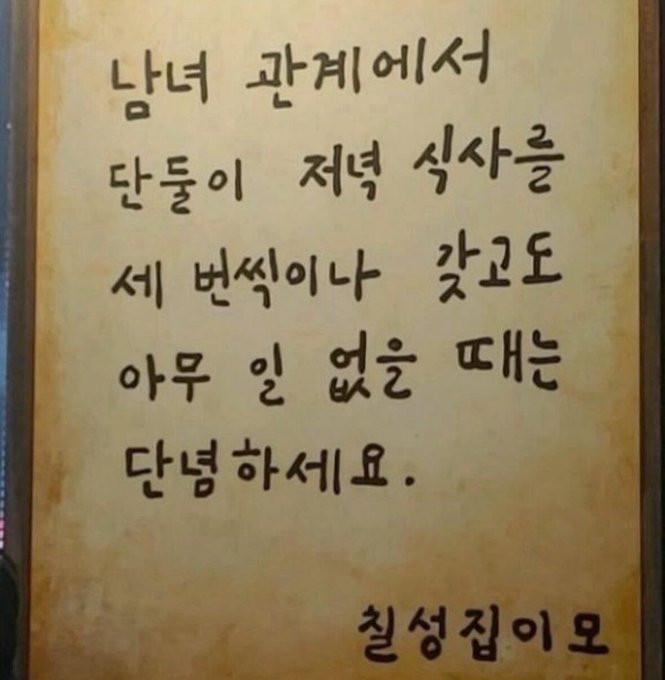 남녀 관계에서
단둘이 저녁 식사를
세 번씩이나 갖고도
아무 일 없을 때는
단념하세요.
칠성집이모